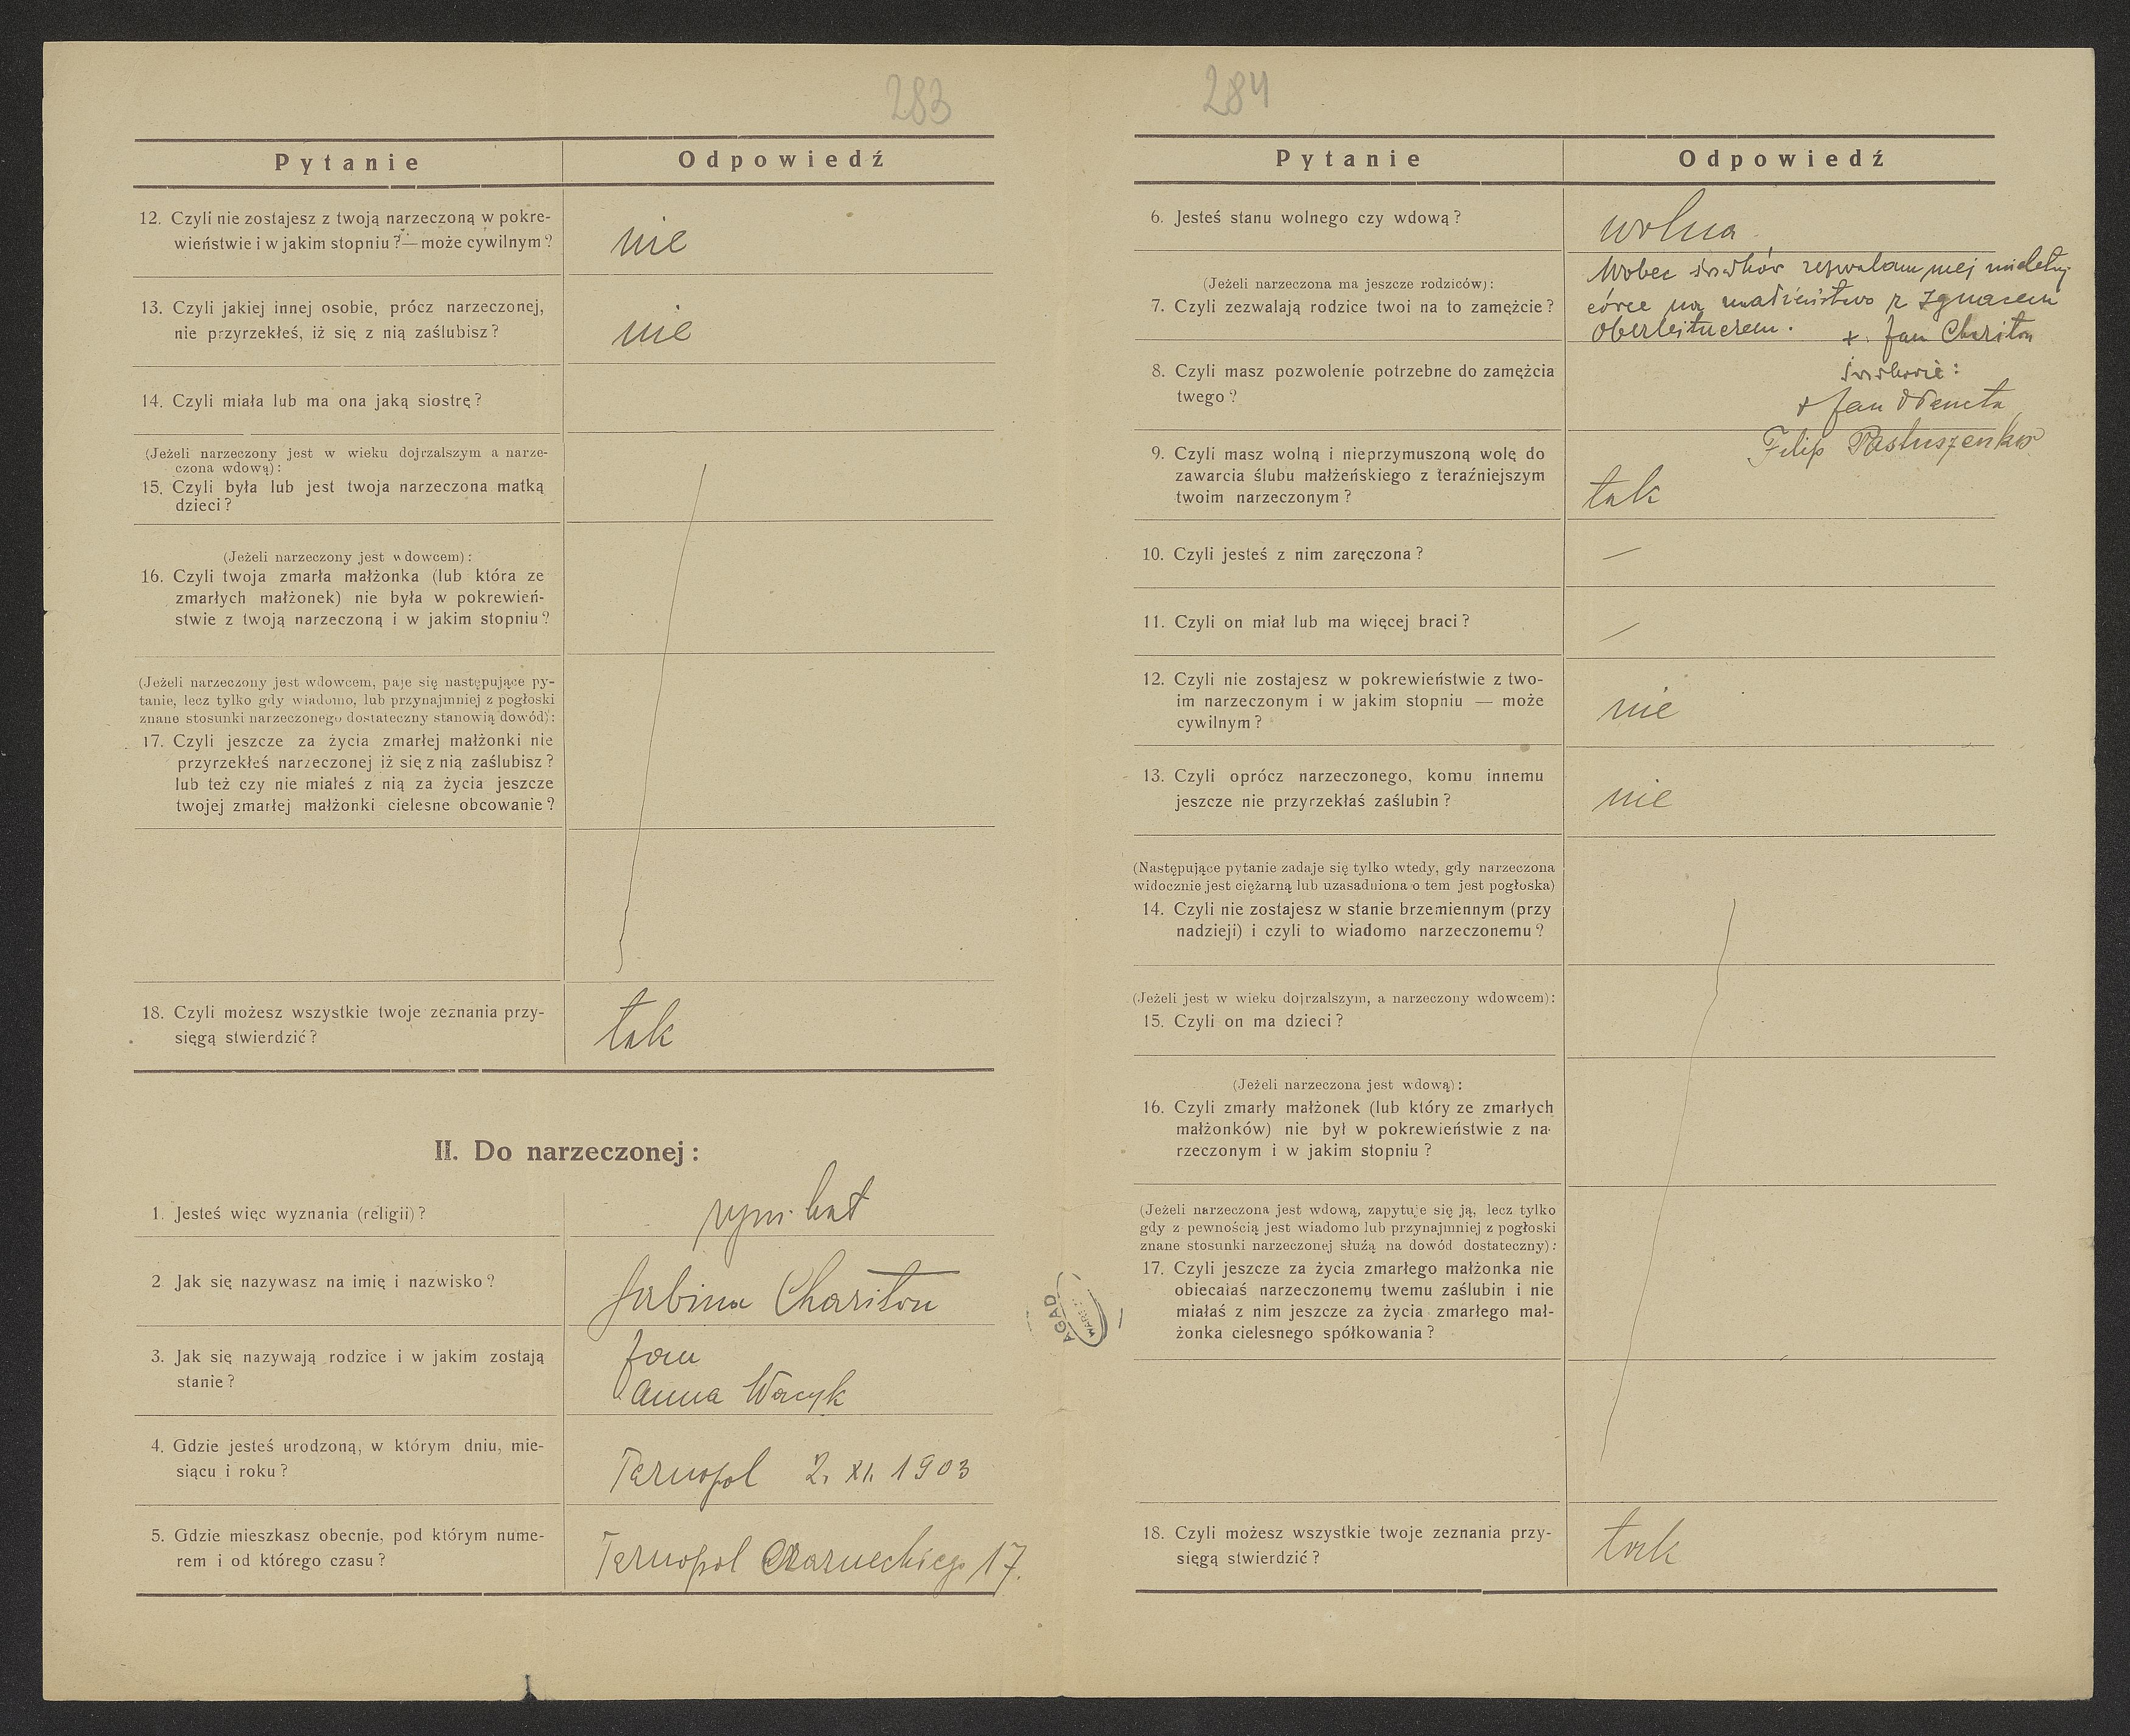 283
Pytanie Odpowiedź
12. Czyli nie zostajesz z twoją narzeczoną w pokre-
wieństwie i w jakim stopniu?— może cywilnym?
nie
13. Czyli jakiej innej osobie, prócz narzeczonej,
nie przyrzekłeś, iż się z nią zaślubisz?
nie
14. Czyli miała lub ma ona jaką siostrę?
(Jeżeli narzeczony jest w wieku dojrzalszym a narze-
czona wdową):
15. Czyli była lub jest twoja narzeczona matką
dzieci?
(Jeżeli narzeczony jest wdowcem):
16. Czyli twoja zmarła małżonka (lub która ze
zmarłych małżonek) nie była w pokrewień-
stwie z twoją narzeczoną i w jakim stopniu?
(Jeżeli narzeczony jest wdowcem, paje się następujące py-
tanie, lecz tylko gdy wiadomo, lub przynajmniej z pogłoski
znane stosunki narzeczonego dostateczny stanowią dowód):
17. Czyli jeszcze za życia zmarłej małżonki nie
przyrzekłeś narzeczonej iż się z nią zaślubisz?
lub też czy nie miałeś z nią za życia jeszcze
twojej zmarłej małżonki cielesne obcowanie?
18. Czyli możesz wszystkie twoje zeznania przy-
sięgą stwierdzić?
tak
II. Do narzeczonej:
1. Jesteś więc wyznania (religii)?
rym. kat
2 Jak się nazywasz na imię i nazwisko?
Sabina Chariton
3. Jak się nazywają rodzice i w jakim zostają
stanie?
Jan
Anna Wacyk
4. Gdzie jesteś urodzoną, w którym dniu, mie-
siącu i roku?
Tarnopol 2. XI. 1903
5. Gdzie mieszkasz obecnie, pod którym nume-
rem i od którego czasu?
Tarnopol Czarneckiego 17.
AGAD
284
Pytanie Odpowiedź
6. Jesteś stanu wolnego czy wdową?
wolna
(Jeżeli narzeczona ma jeszcze rodziców):
7. Czyli zezwalają rodzice twoi na to zamężcie?
Wobec świadków zezwalam mej nieletniej
córce na małżeństwo z Ignacem
Oberleitnerem.
+. Jan Chariton
świadkowie:
8. Czyli masz pozwolenie potrzebne do zamężcia
twego?
+ Jan
Filip Pastuszenko
9. Czyli masz wolną i nieprzymuszoną wolę do
zawarcia ślubu małżeńskiego z teraźniejszym
twoim narzeczonym?
tak
10. Czyli jesteś z nim zaręczona?
—
11. Czyli on miał lub ma więcej braci?
—
12. Czyli nie zostajesz w pokrewieństwie z two-
im narzeczonym i w jakim stopniu — może
cywilnym?
nie
13. Czyli oprócz narzeczonego, komu innemu
jeszcze nie przyrzekłaś zaślubin?
nie
(Następujące pytanie zadaje się tylko wtedy, gdy narzeczona
widocznie jest ciężarną lub uzasadniona o tem jest pogłoska)
14. Czyli nie zostajesz w stanie brzemiennym (przy
nadzieji) i czyli to wiadomo narzeczonemu?
(Jeżeli jest w wieku dojrzalszym, a narzeczony wdowcem):
15. Czyli on ma dzieci?
(Jeżeli narzeczona jest wdową):
16. Czyli zmarły małżonek (lub który ze zmarłych
małżonków) nie był w pokrewieństwie z na-
rzeczonym i w jakim stopniu?
(Jeżeli narzeczona jest wdową, zapytuje się ją, lecz tylko
gdy z pewnością jest wiadomo lub przynajmniej z pogłoski
znane stosunki narzeczonej służą na dowód dostateczny):
17. Czyli jeszcze za życia zmarłego małżonka nie
obiecałaś narzeczonemu twemu zaślubin i nie
miałaś z nim jeszcze za życia zmarłego mał-
żonka cielesnego spółkowania?
18. Czyli możesz wszystkie twoje zeznania przy-
sięgą stwierdzić?
tak